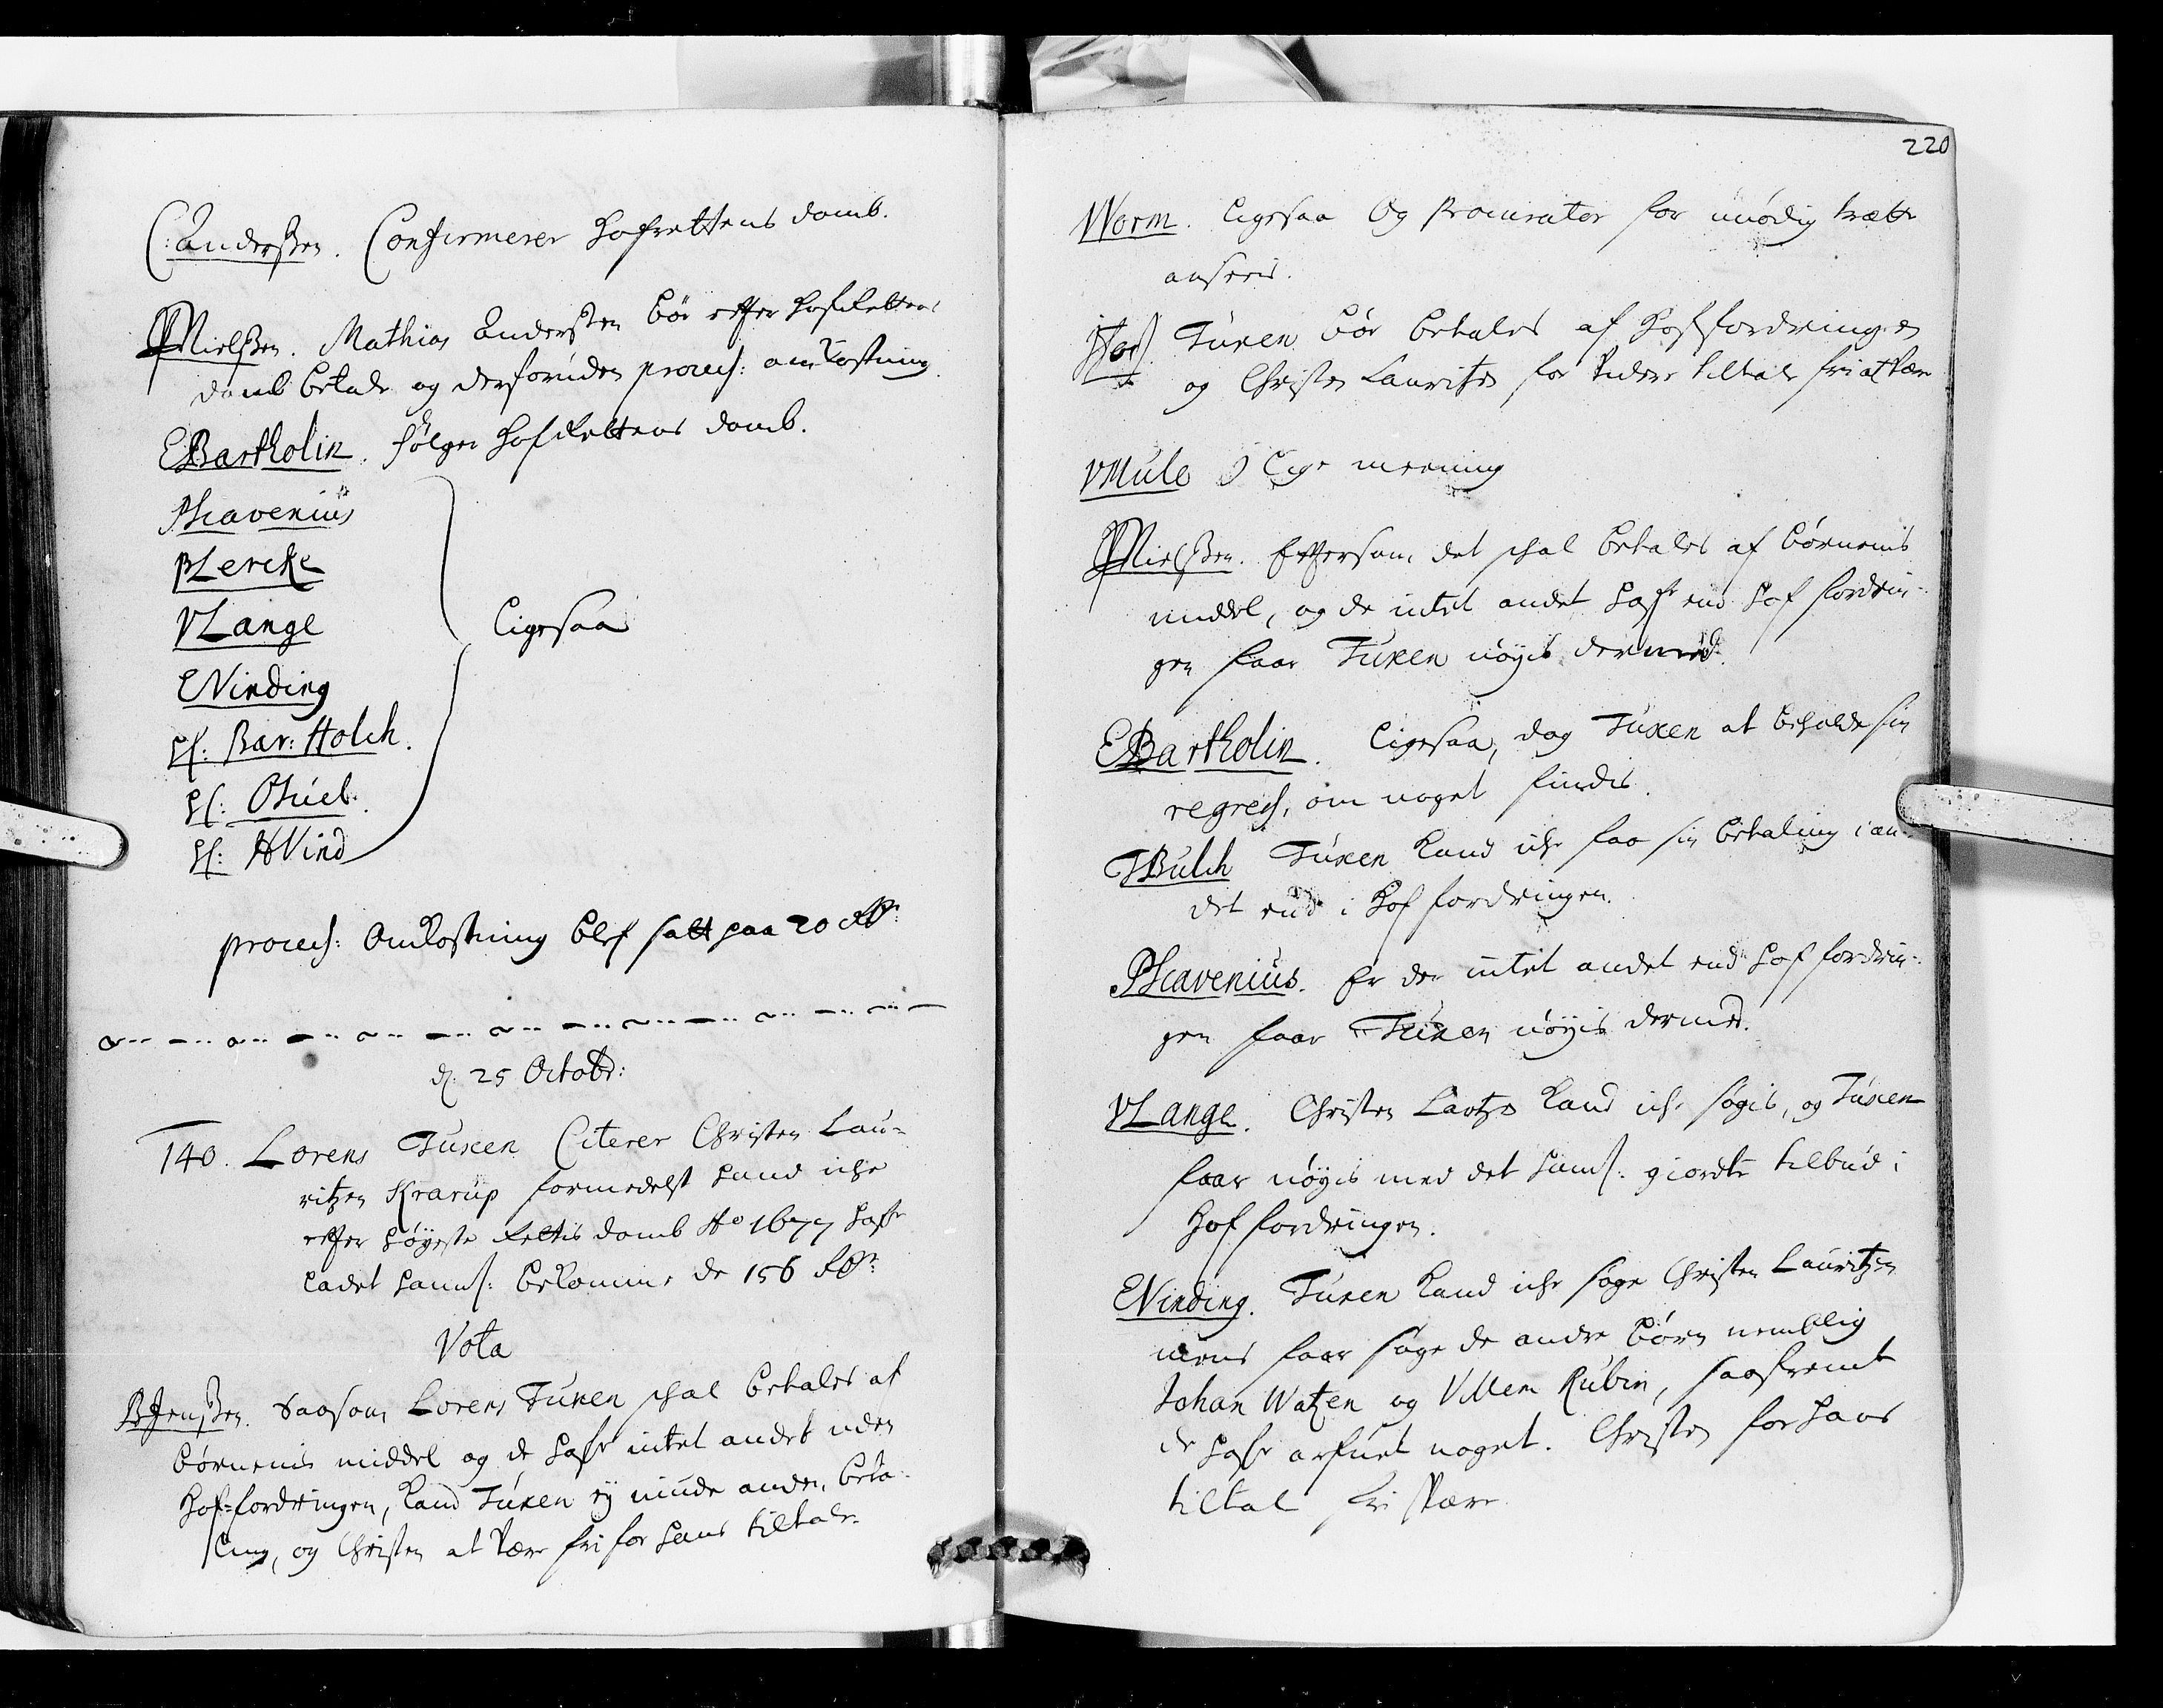 C: Anderssen. Confirmerer Hofrettens domb.
PNielssen. Mathias Anderssen bör efter HofRettens
domb betale og desforuden process: omkostning
CBartholin. følger HofRettens domb.
PScavenius
PLercke
VLange
CVinding
Hs: Bar: Holch.
Hs: OJuel.
Hs: HVind
Ligesaa
process: Omkostning blef satt paa 20 Rdr:
d. 25 Octobr:
140. Lorens Tuxen Citerer Christen Lau-
ritzen Krarup formedelst hand iche
efter Høyeste Rettis domb Ao 1677 hafr
ladet hanns: bekomme de 156 Rdr:
Vota
BJenssen. Saasom Lorens Tuxen schal betales af
børnenis middel og de hafr intet andet uden
Hof-fordringen, kand Tuxen ej niude anden beta-
ling, og Christen at være fri for hans tiltale.
220
Worm. Ligesaa Og Procurator for unödig trette
anseeis.
Tuxen bör betales af Hoffordringen
og Christen Lauritzen for videre tiltale fri at være
VMule I lige meening
PNielssen. Eftersom det schal betales af børnenis
middel, og de intet andet hafr end Hof fordrin-
gen faar Tuxen nöyis dermed.
CBartholin. Ligesaa, dog Tuxen at beholde sin
regress, om noget findis.
TBulch Tuxen kand iche faa sin betaling i an-
det end i Hof fordringen.
PScavenius. Er der intet andet end Hof fordrin-
gen faar Tuxen nöyis dermed.
VLange. Christen Lautzen kand iche søgis, og Tuxen
faar nöyis med det hanns: giordte tilbud i
Hof fordringen.
CVinding. Tuxen kand iche søge Christen Lauritzen
mens faar søge de andre börn nemblig
Johan Watzen og Villem Rubin, saafremt
de hafr arfuet noget. Christen for hans
tiltal fri være